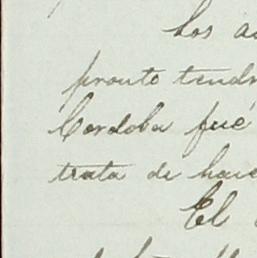 Los a
pronto tendr
Cordoba fué
trata de hace
El